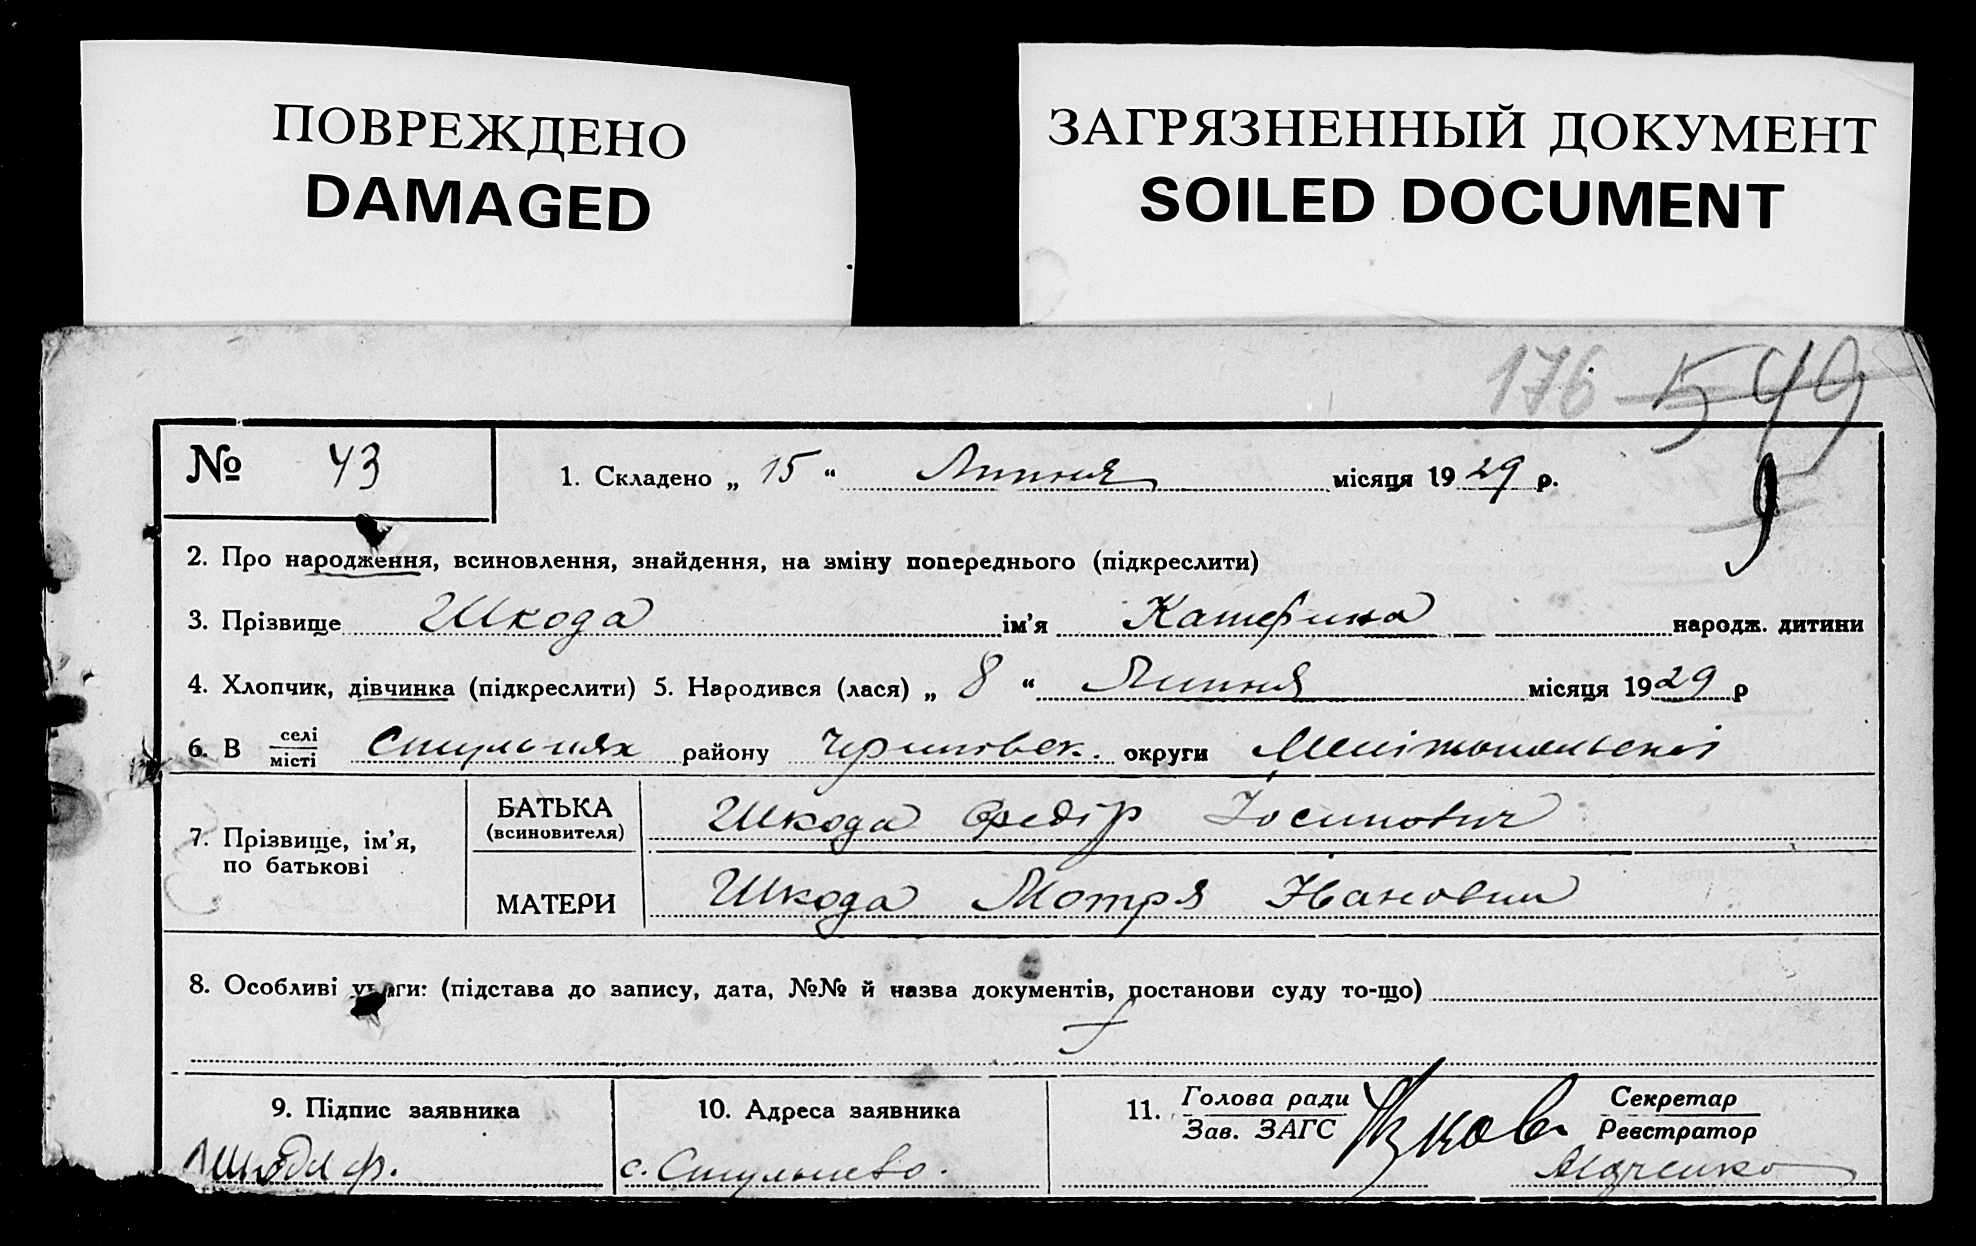 ПОВРЕЖДЕНО
DAMAGED
ЗАГРЯЗНЕННЫЙ ДОКУМЕНТ
SOILED DOCUMENT
176 549
№ 43
1. Складено „ 15 “ Липня місяця 1929 р.
9
2. Про народження, всиновлення, знайдення, на зміну попереднього (підкреслити)
3. Прізвище Шкода ім’я Катерина народж. дитини
4. Хлопчик, дівчинка (підкреслити) 5. Народився (лася) „ 8 “ Липня місяця 1929 р
6. В селі місті району округи Мелітопольскої
7. Прізвище, ім’я, по батькові
БАТЬКА (всиновителя) Шкода Федір Йосипович
МАТЕРИ Шкода Мотря Івановна
8. Особливі уваги: (підстава до запису, дата, №№ й назва документів, постанови суду то-що)
9. Підпис заявника
Шкода ф.
10. Адреса заявника
с.
11. Голова ради Зав. ЗАГС
Секретар Реєстратор